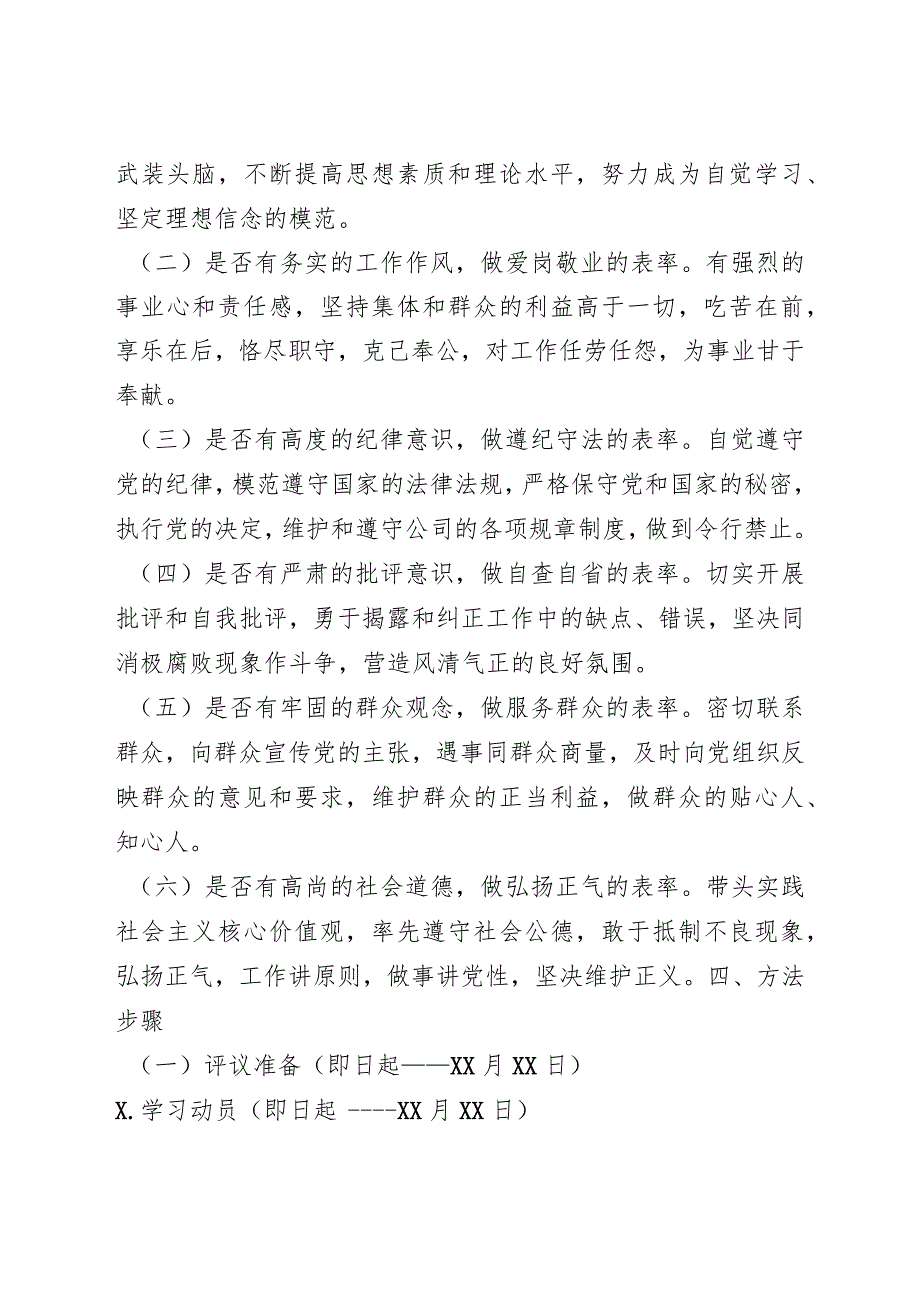 武装头脑，不断提高思想素质和理论水平，努力成为自觉学习、
坚定理想信念的模范。
（二）是否有务实的工作作风，做爱岗敬业的表率。有强烈的
事业心和责任感，坚持集体和群众的利益高于一切，吃苦在前，
享乐在后，恪尽职守，克己奉公，对工作任劳任怨，为事业甘于
奉献。
（三）是否有高度的纪律意识，做遵纪守法的表率。自觉遵守
党的纪律，模范遵守国家的法律法规，严格保守党和国家的秘密，
执行党的决定，维护和遵守公司的各项规章制度，做到令行禁止。
（四）是否有严肃的批评意识，做自查自省的表率。切实开展
批评和自我批评，勇于揭露和纠正工作中的缺点、错误，坚决同
消极腐败现象作斗争，营造风清气正的良好氛围。
（五）是否有牢固的群众观念，做服务群众的表率。密切联系
群众，向群众宣传党的主张，遇事同群众商量，及时向党组织反
映群众的意见和要求，维护群众的正当利益，做群众的贴心人、
知心人。
（六）是否有高尚的社会道德，做弘扬正气的表率。带头实践
社会主义核心价值观，率先遵守社会公德，敢于抵制不良现象，
弘扬正气，工作讲原则，做事讲党性，坚决维护正义。四、方法
步骤
（一）评议准备（即日起——XX月XX日）
X.学习动员（即日起 ----XX月XX日）